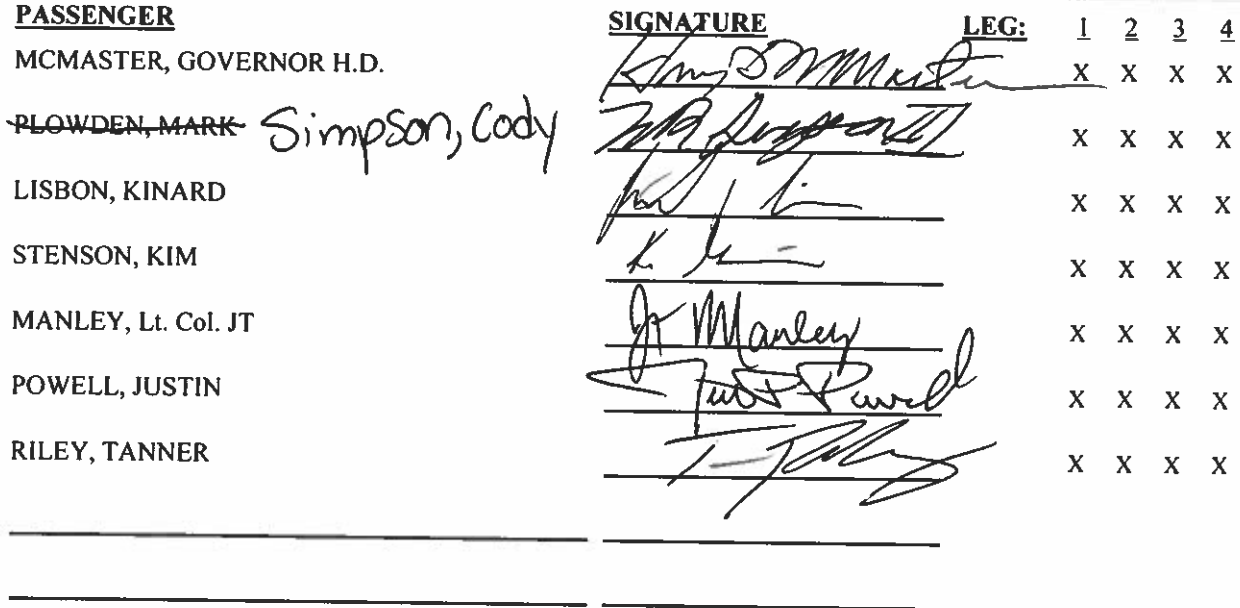 PASSENGER SIGNATURE LEG: 1 2 3 4
MCMASTER, GOVERNOR H.D. X X X X
PLOWDEN, MARK Simpson, Cody X X X X
LISBON, KINARD X X X X
STENSON, KIM K. X X X X
MANLEY, Lt. Col. JT JT Manley X X X X
POWELL, JUSTIN Powell X X X X
RILEY, TANNER X X X X